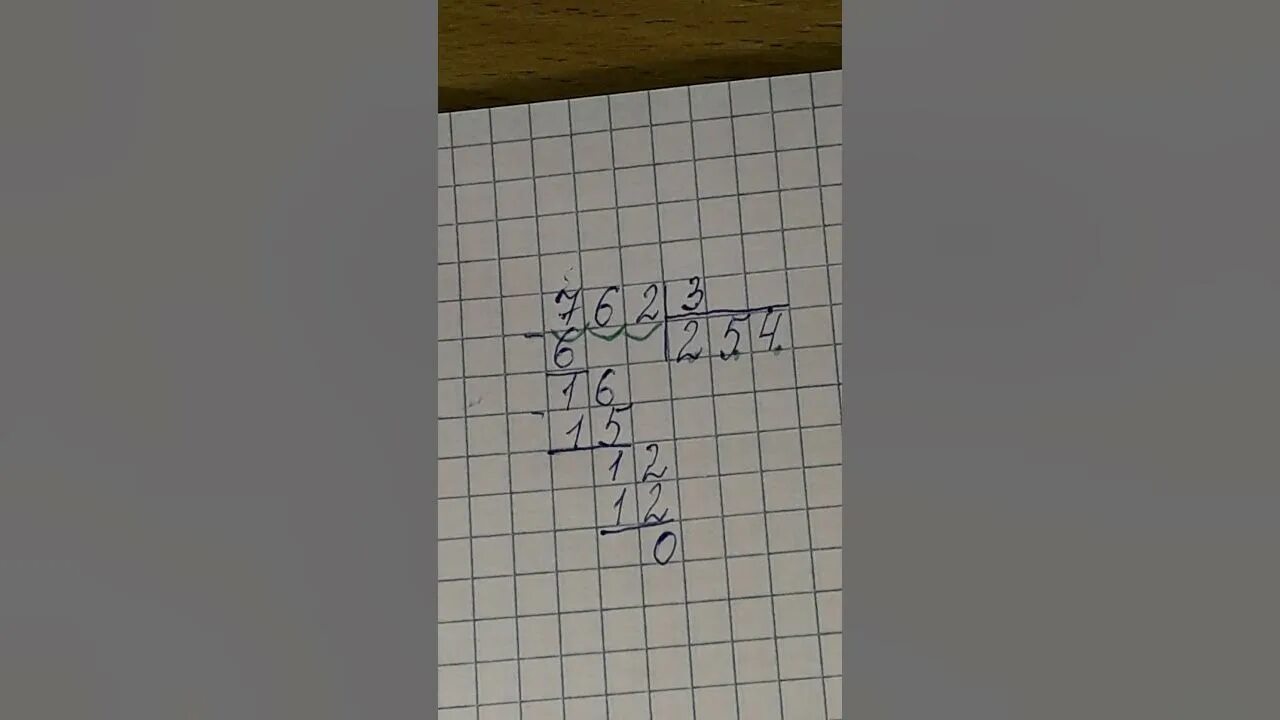 762 3
- 6 254
16
- 15
12
12
0